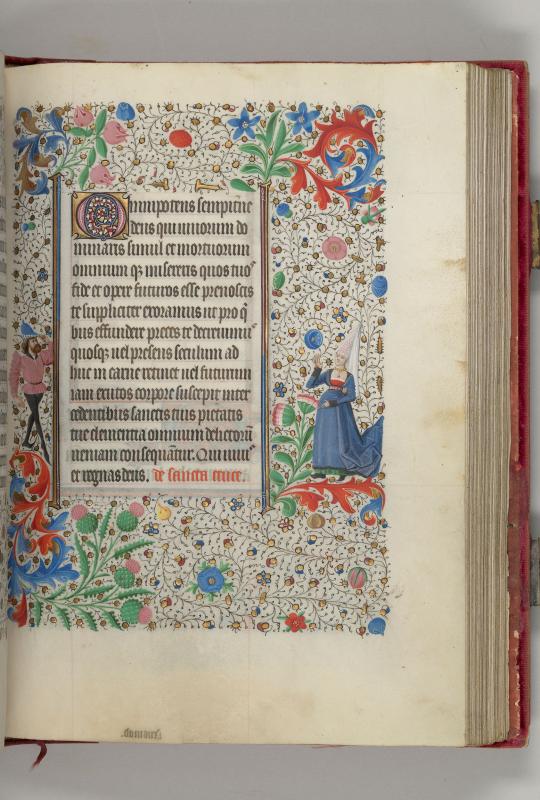 Omnipotens sempit̃ne
deus qui uiuorum do
minaris simul et mortuorum
omnium q3 misereris quos tuos
fide et opere futuros esse prenoscis
te suppliciter exoramus ut pro q̃
bus effundere preces te decreuimus
quosq3 uel presens seculum ad
huc in carne retinet uel futurum
iam exutos corpore suscepit inter
cedentibus sanctis tuis pietatis
tue clementia omnium delictorũ
ueniam consequãtur. Qui uiuis
et regnas deus. de sancta cruce.